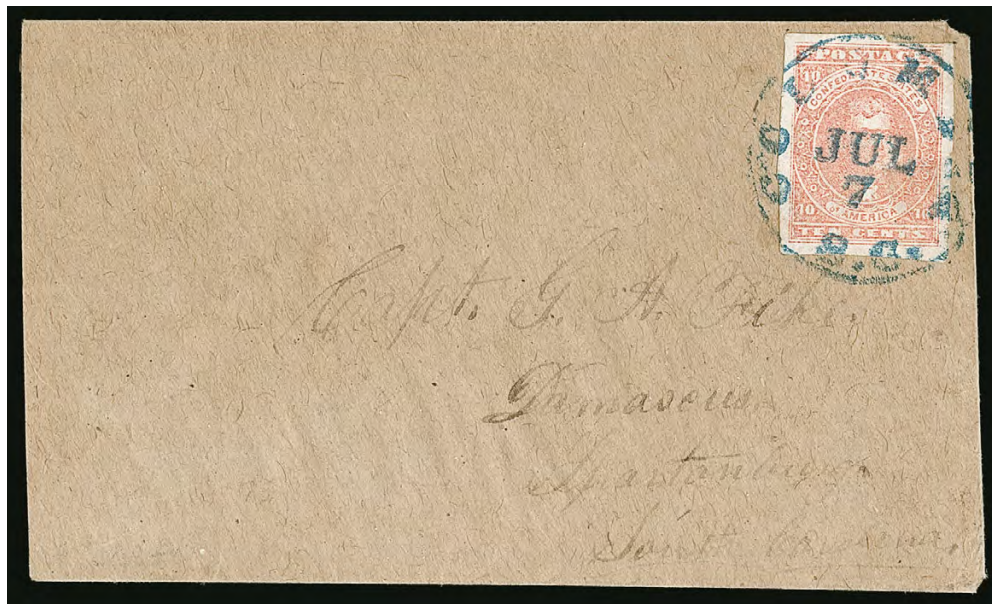 POSTAGE
10
CONFEDERATE STATES
OF AMERICA
10 10
TEN CENTS
JUL
7
S.C.
Capt. G. A.
Damascus
Spartanburg
South Carolina.